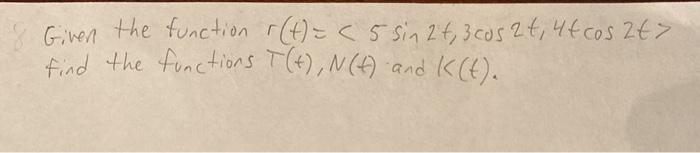 8 Given the function r(t) = < 5 sin 2t, 3 cos 2t, 4t cos 2t >
find the functions T(t), N(t) and K(t).